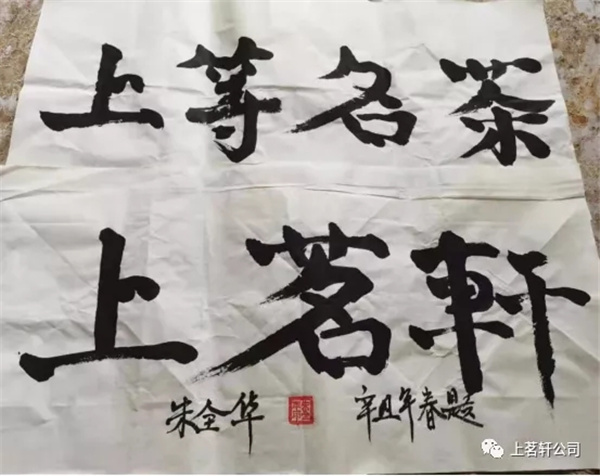 上等名茶
上茗軒
朱全华 辛丑年春题
上茗轩公司